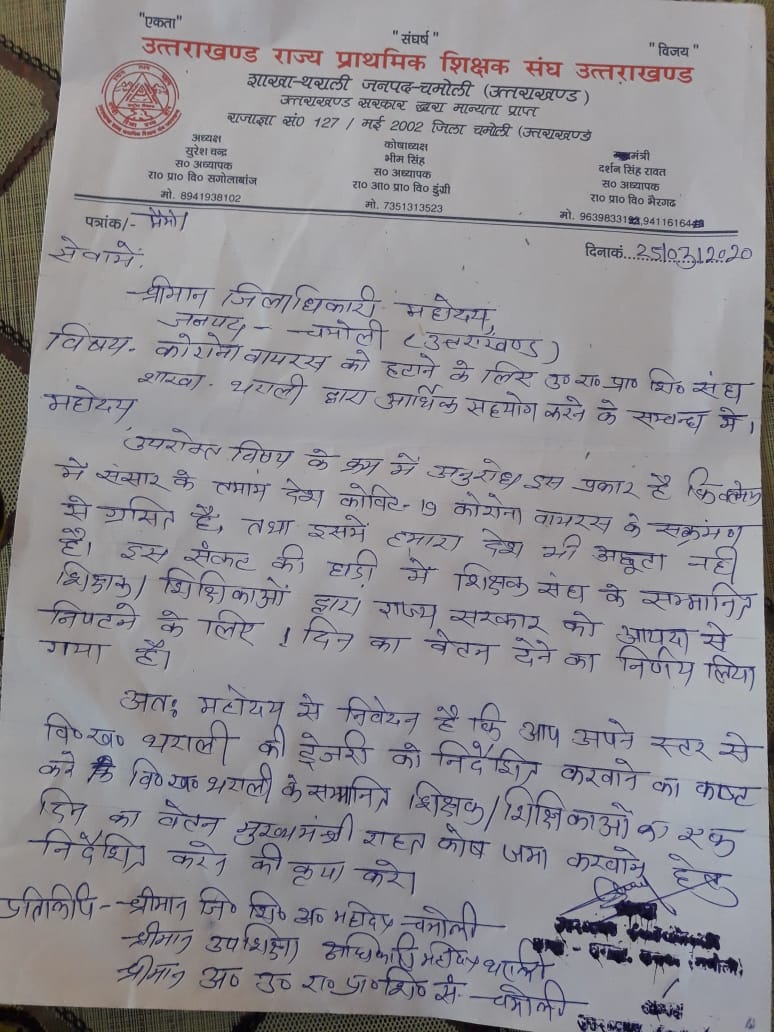 "एकता"
"संघर्ष"
"विजय"
उत्तराखण्ड राज्य प्राथमिक शिक्षक संघ उत्तराखण्ड
शाखा-थराली जनपद-चमोली (उत्तराखण्ड)
उत्तराखण्ड सरकार द्वारा मान्यता प्राप्त
राजाज्ञा सं0 127 / मई 2002 जिला चमोली (उत्तराखण्ड)
अध्यक्ष
सुरेश चन्द्र
स० अध्यापक
रा० प्रा० वि० सगोलाबांज
मो. 8941938102
कोषाध्यक्ष
भीम सिंह
स० अध्यापक
रा० आ० प्रा० वि० डुंग्री
मो. 7351313523
मंत्री
दर्शन सिंह रावत
स० अध्यापक
रा० प्रा० वि० भैरगढ
मो.
पत्रांक/-
दिनाकं...25/03/2020
सेवामें,
श्रीमान जिलाधिकारी महोदय,
जनपद - चमोली (उत्तराखण्ड)
विषय- कोरोना वायरस को हटाने के लिए उ० रा० प्रा० शि० संघ
शाखा- थराली द्वारा आर्थिक सहयोग करने के सम्बन्ध में।
महोदय,
उपरोक्त विषय के क्रम में अनुरोध इस प्रकार है कि
में संसार के तमाम देश कोविट-19 कोरोना वायरस के सक्रंमण
से ग्रसित है, तथा इसमें हमारा देश भी अछूता नही
है। इस संकट की घड़ी में शिक्षक संघ के सम्मानित
शिक्षक/ शिक्षिकाओं द्वारा राज्य सरकार को आपदा से
निपटने के लिए 1 दिन का वेतन देने का निर्णय लिया
गया है।
अतः महोदय से निवेदन है कि आप अपने स्तर से
वि०ख० थराली की ट्रेजरी को निर्देशित करवाने का कष्ट
करें कि वि०ख० थराली के सम्मानित शिक्षक/शिक्षिकाओं का एक
दिन का वेतन मुख्यमंत्री राहत कोष जमा करवाने हेतु
निर्देशित करने की कृपा करे।
प्रतिलिपि- श्रीमान जि० शि० अ० महोदय चमोली
श्रीमान उपशिक्षा अधिकारी महोदय थराली
श्रीमान अ० उ० रा० प्रा० शि० सं० चमोली